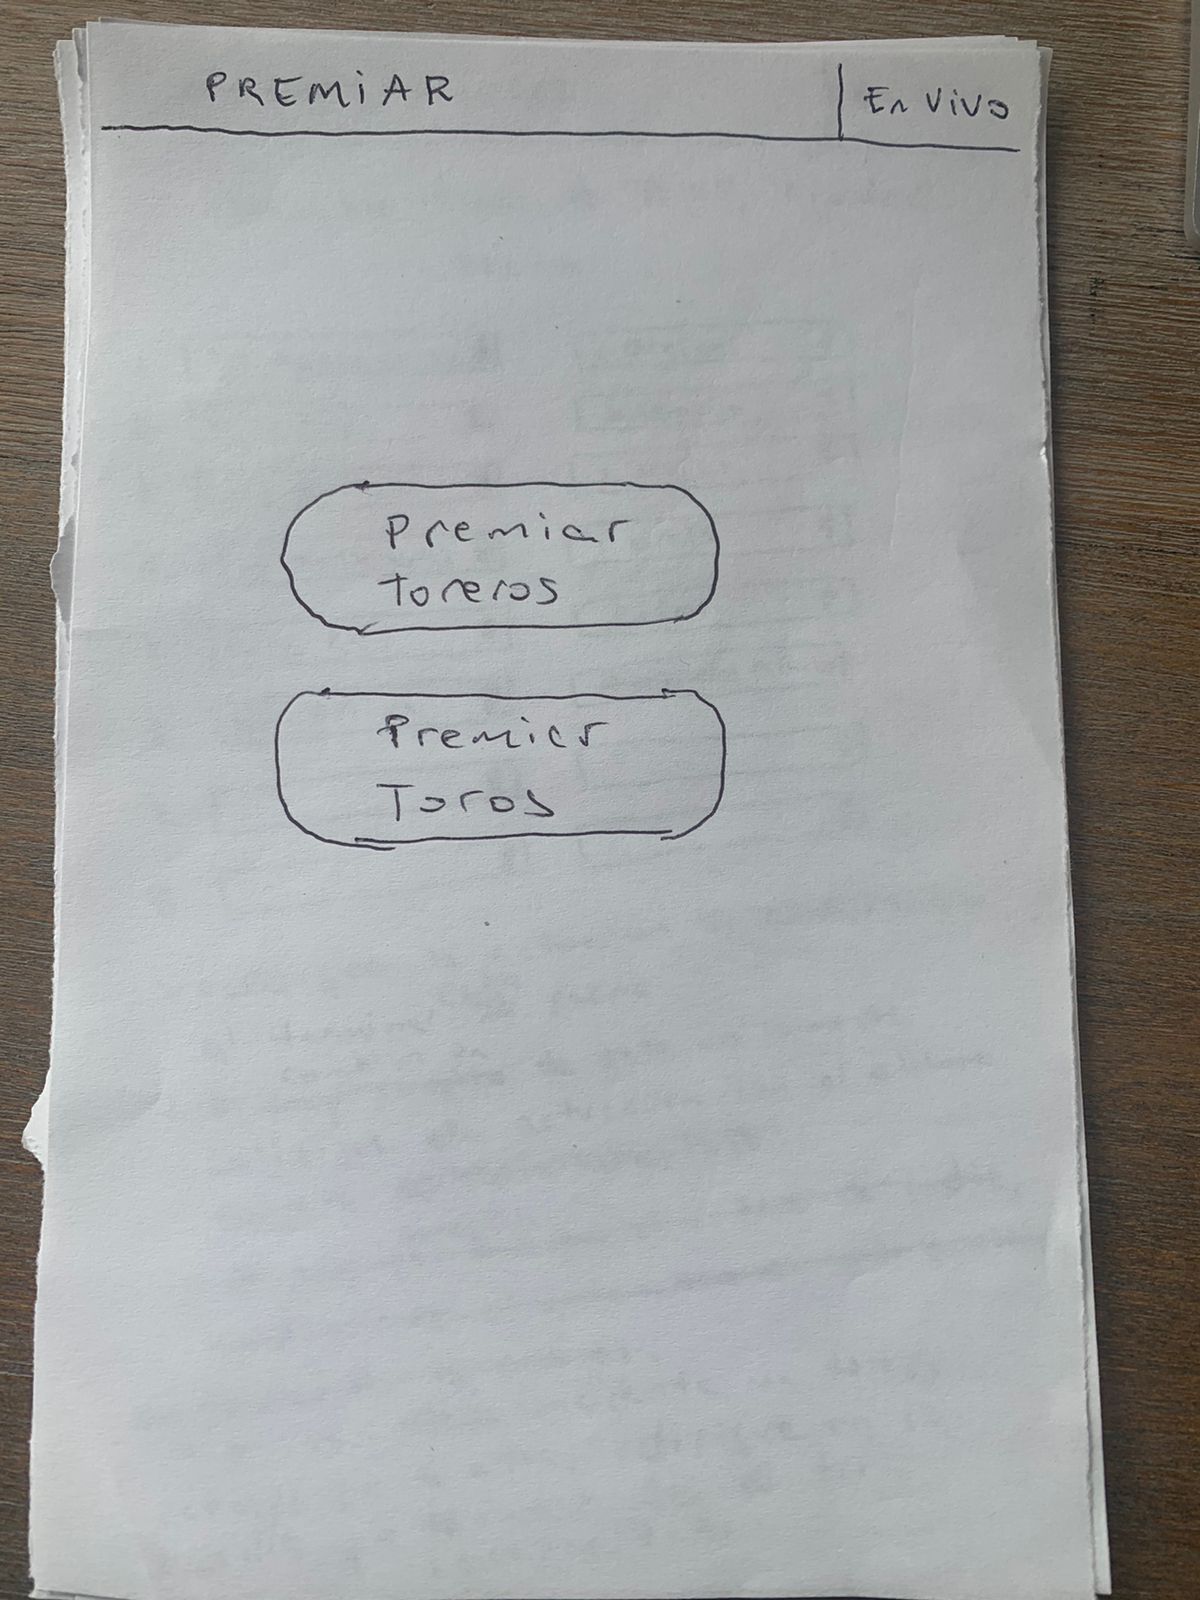 PREMIAR
En vivo
Premiar
toreros
Premiar
Toros